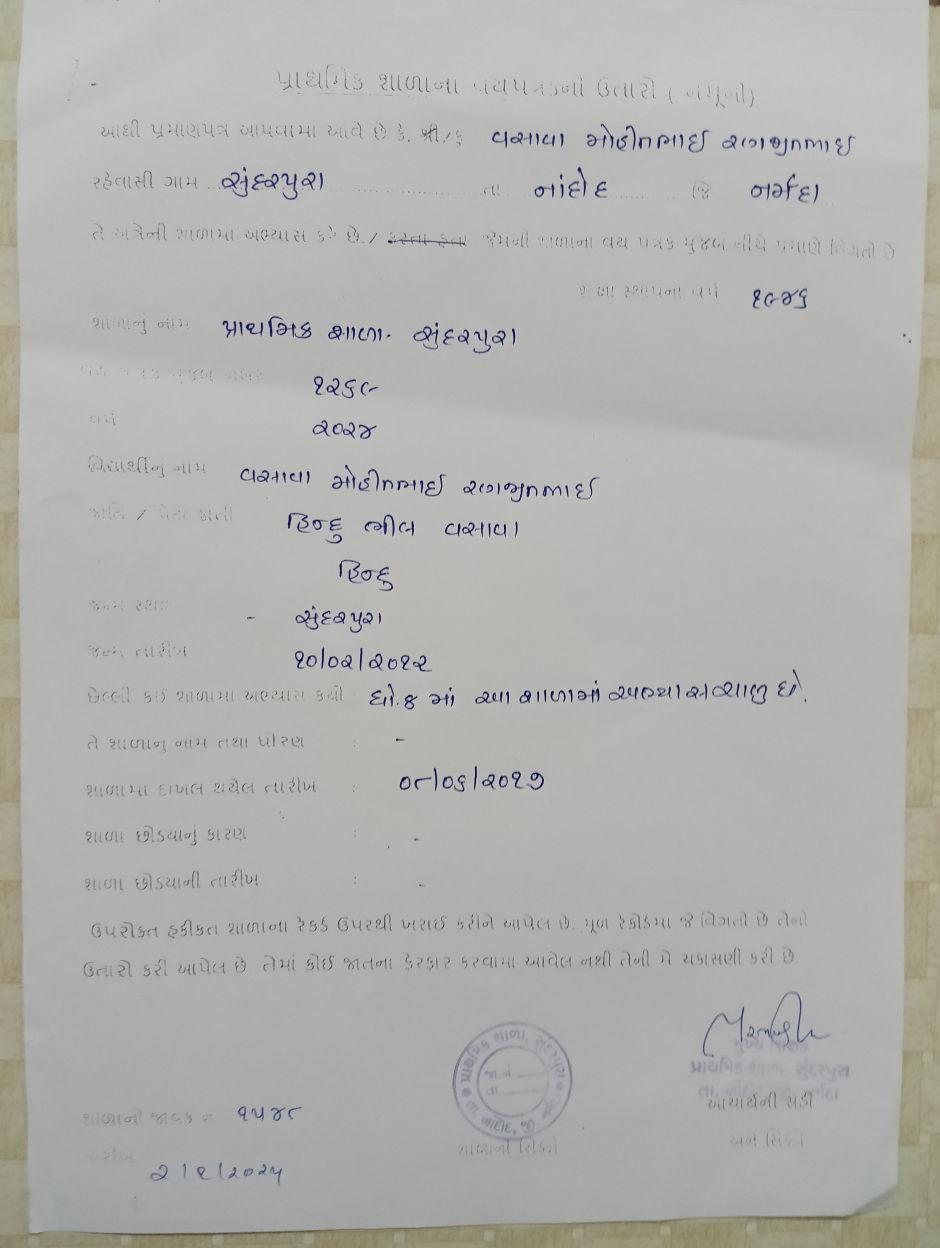 પ્રાથમિક શાળાના વયપત્રકનો ઉતારો ( નમૂનો )
આથી પ્રમાણપત્ર આપવામા આવે છે કે, શ્રી/કુ વસાવા મોહીતભાઈ રણજીતભાઈ
રહેવાસી ગામ સુંદરપુરા તા નાંદોદ જિ નર્મદા
તે અત્રેની શાળામા અભ્યાસ કરે છે / કરતા હતા જેમની શાળાના વય પત્રક મુજબ નીચે પ્રમાણે વિગતો છે
શાળા સ્થાપના વર્ષ ૧૯૪૬
શાળાનું નામ પ્રાથમિક શાળા. સુંદરપુરા
વય પત્રક મુજબ નંબર ૧૨૬૯
વર્ષ ૨૦૨૪
વિદ્યાર્થીનું નામ વસાવા મોહીતભાઈ રણજીતભાઈ
જાતિ / પેટા જાતી હિન્દુ ભીલ વસાવા
હિન્દુ
જન્મ સ્થળ - સુંદરપુરા
જન્મ તારીખ ૧૦/૦૨/૨૦૧૨
છેલ્લી કઈ શાળામા અભ્યાસ કર્યો ધો.૪ માં આ શાળામાં અભ્યાસ ચાલુ છે.
તે શાળાનુ નામ તથા ધોરણ : -
શાળામા દાખલ થયેલ તારીખ : ૦૮/૦૬/૨૦૧૭
શાળા છોડયાનું કારણ : -
શાળા છોડયાની તારીખ : -
ઉપરોક્ત હકીકત શાળાના રેકર્ડ ઉપરથી ખરાઈ કરીને આપેલ છે. મૂળ રેકોર્ડમા જે વિગતો છે તેનો
ઉતારો કરી આપેલ છે તેમાં કોઈ જાતના ફેરફાર કરવામા આવેલ નથી તેની મે ચકાસણી કરી છે
પ્રાથમિક શાળા, સુંદરપુરા
જા.નં.
તા.
તા. નાંદોદ, જી. નર્મદા
મુખ્ય શિક્ષક
પ્રાથમિક શાળા, સુંદરપુરા
તા. નાંદોદ જી. નર્મદા
આચાર્યની સહી
અને સિક્કો
શાળાનો સિક્કો
શાળાનો જાવક નં ૧૫૪૮
તારીખ ૨/૧/૨૦૨૫